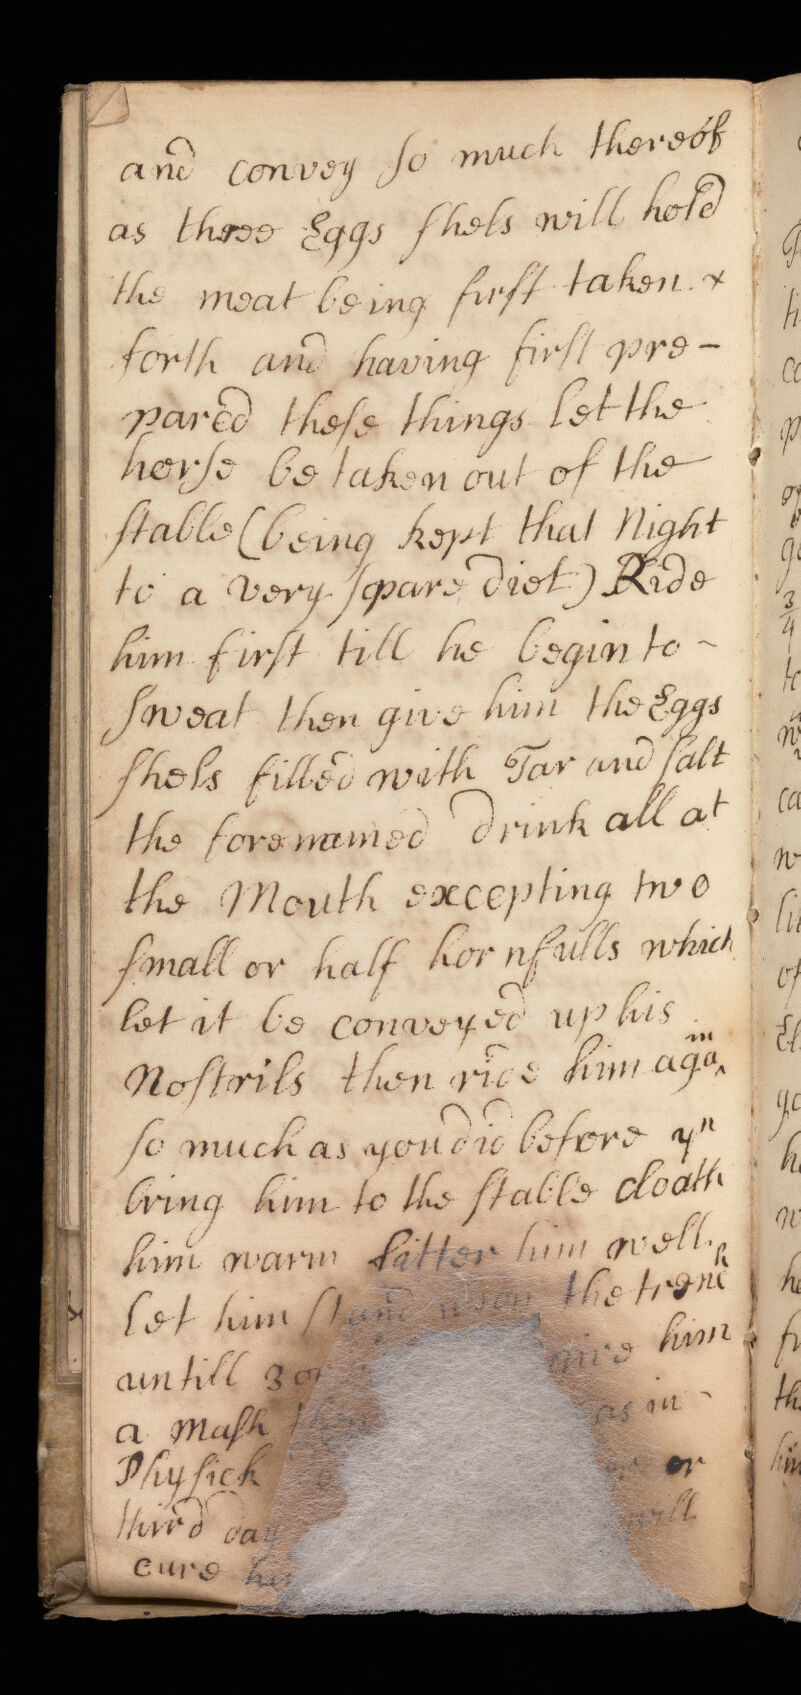 and convey so much thereof
as three Eggs shels will hold
the meat being first taken. x
forth and having first pre-
pared these things let the
horse be taken out of the
stable (being kept that Night
to a very spare diet) Ride
him first till he begin to -
sweat then give him the Eggs
shels filled with Tar and salt
the forenamed drink all at
the Mouth excepting two
small or half hornfulls which
let it be conveyed up his
Nostrils then ride him again
so much as you did before yn
bring him to the stable cloath
him warm litter him well
let him stand upon the trench
untill 3 or give him
a mash then as in -
Physick or
third day will
cure